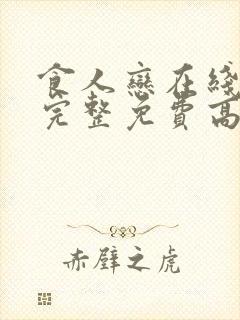 食人戀在綫
完整免費高
赤壁之虎